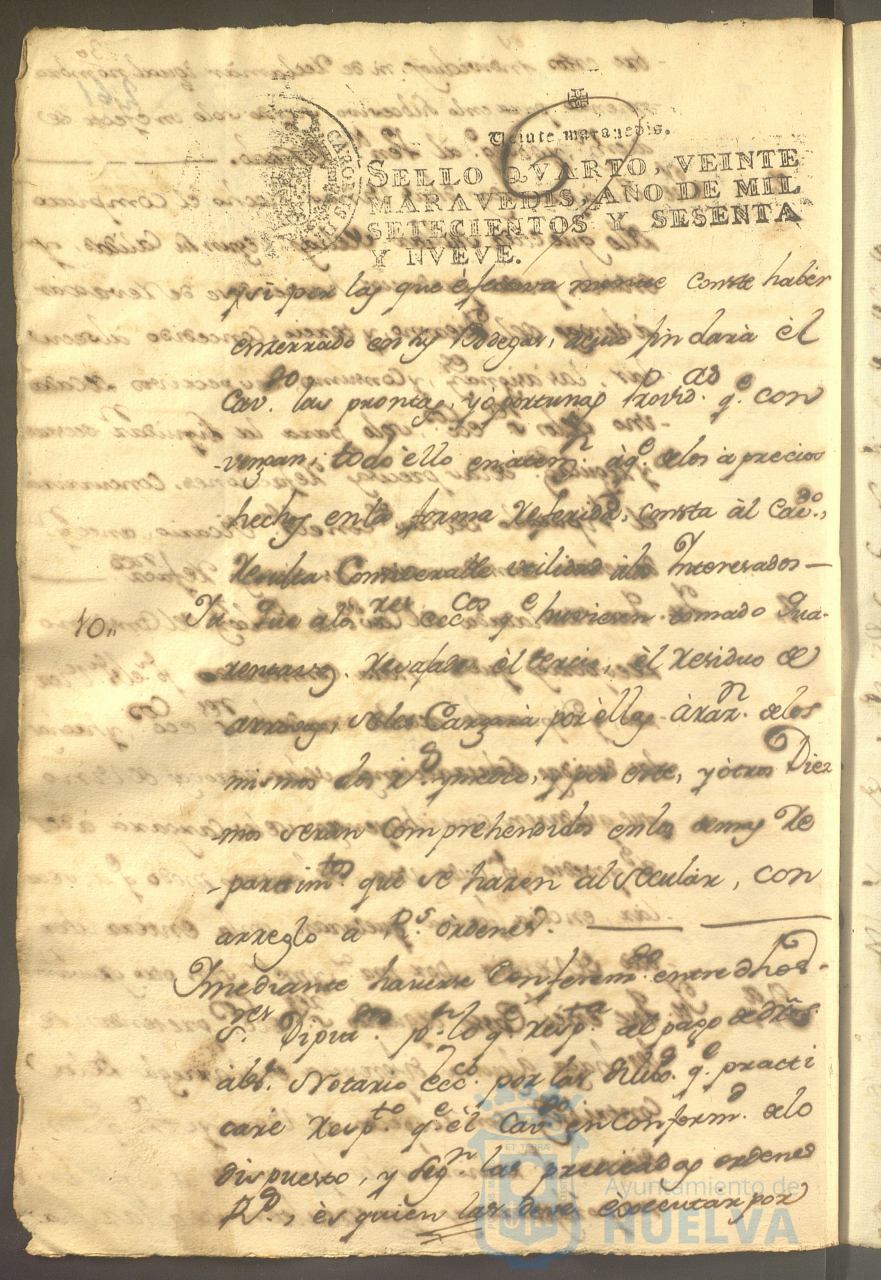 Veinte maravedis.
SELLO QVARTO, VEINTE
MARAVEDIS, AÑO DE MIL
SETECIENTOS Y SESENTA
Y NVEVE.
CAROLUS III
y si por las que efectivamente conste haber
encerrado en sus Bodegas, a cuio fin dará èl
Cavdo. las prontas, y oportunas Provid.as q.e con
-vengan; todo èllo en àten.n à q.e de los àprecios
hechos en la forma referida, consta àl Cavdo.,
resulta Considerable utilidad à los Interesados —
10,, Yt. que a los res ecc.cos q.e huviesen tomado Qua-
rentavas, revajado èl tercio, èl residuo de
arrobas, se les Cargará por èllas à raz.n de los
mismos dos r.s y medio, y por este, y òtros Diez
-mos seran comprehendidos en los demas Re
-partim.tos que se hacen al Secular, con
arreglo a R.s ordenes.
Y mediante haverse Conferem.do entre dhos
S.res Diput.dos p.r lo q.e resp.ta al pago de dros
àl Notario ecc.co por las dilix.s q.e practi
care resp.to q.e èl Cavdo en conform.d de lo
dispuesto, y seg.n las precitadas ordenes
R.s, ès quien las deve executar por
Ayuntamiento de
HUELVA